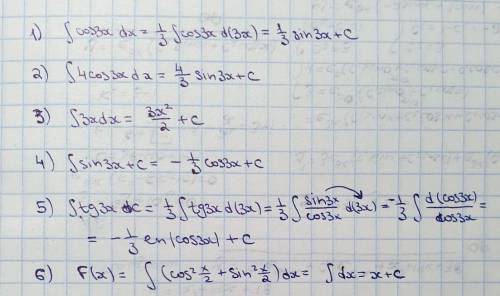 1) ∫cos3x dx = 1/3 ∫cos3x d(3x) = 1/3 sin3x + C
2) ∫4cos3x dx = 4/3 sin3x + C
3) ∫3x dx = 3x²/2 + C
4) ∫sin3x + C = - 1/3 cos3x + C
5) ∫tg3x dx = 1/3 ∫tg3x d(3x) = 1/3 ∫ sin3x/cos3x d(3x) = -1/3 ∫ d(cos3x)/cos3x =
= - 1/3 ln(cos3x) + C
6) F(x) = ∫(cos² x/2 + sin² x/2) dx = ∫dx = x + C